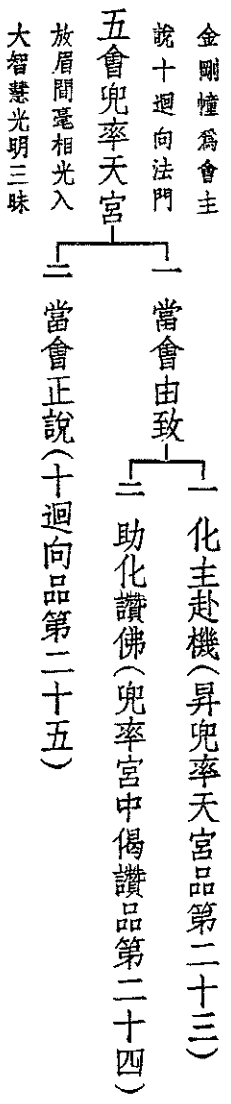 金剛幢爲會主
說十迴向法門
五會兜率天宮
放眉間毫相光入
大智慧光明三昧
一 當會由致
一 化主赴機(昇兜率天宮品第二十三)
二 助化讚佛(兜率宮中偈讚品第二十四)
二 當會正說(十迴向品第二十五)